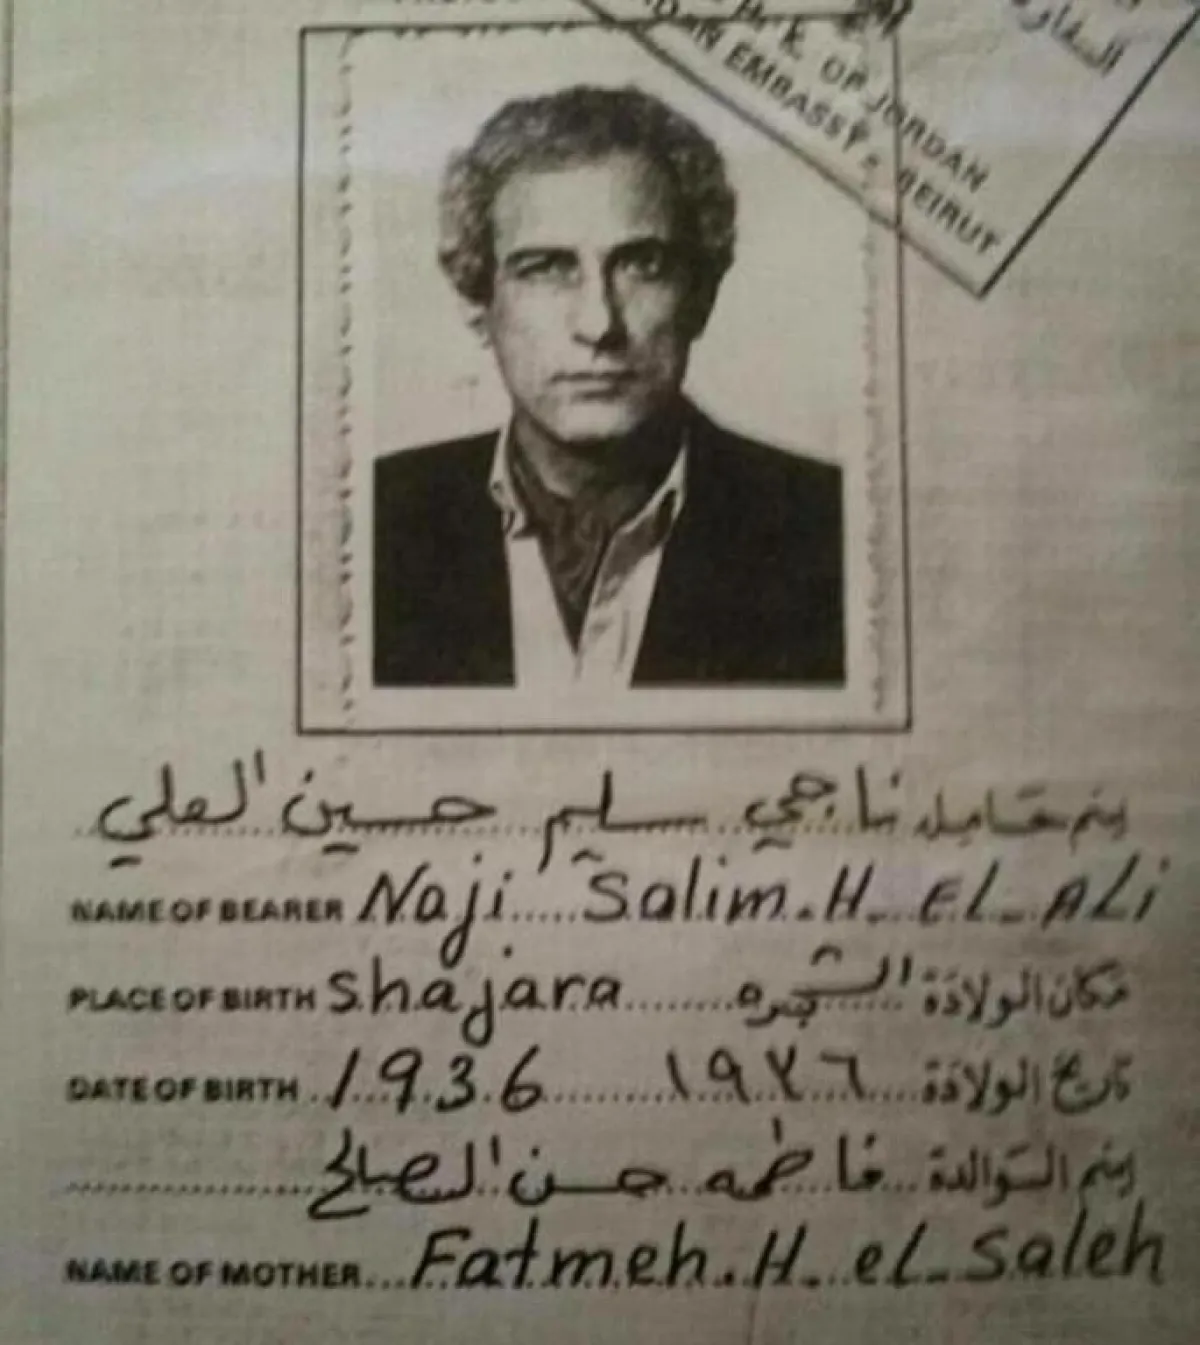 H. K. OF JORDAN
EMBASSY - BEIRUT
السفارة
اسم حامله ناجي سليم حسين العلي
NAME OF BEARER Naji Salim. H_ EL_ ALi
PLACE OF BIRTH Shajara الشجره مكان الولادة
DATE OF BIRTH 1936 ١٩٣٦ تاريخ الولادة
اسم الوالدة فاطمه حسن الصالح
NAME OF MOTHER Fatmeh. H_ eL_ Saleh